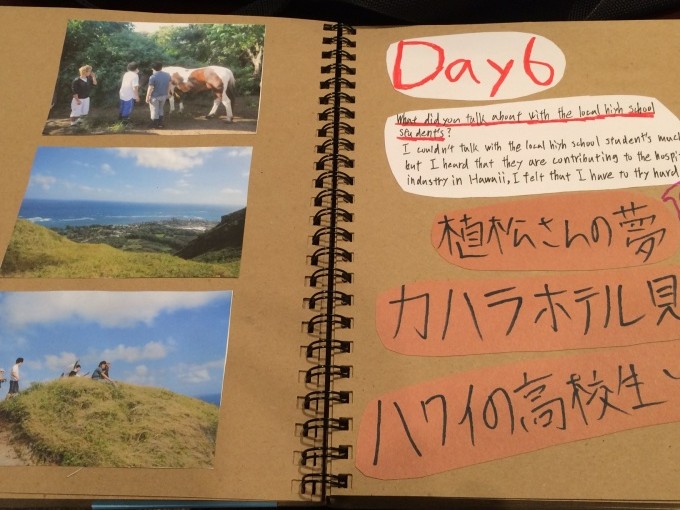 Day 6
What did you talk about with the local high school
student's?
I couldn't talk with the local high school student's much
but I heard that they are contributing to the hospi
industry in Hawaii, I felt that I have to thy hard
植松さんの夢
カハラホテル見
ハワイの高校生